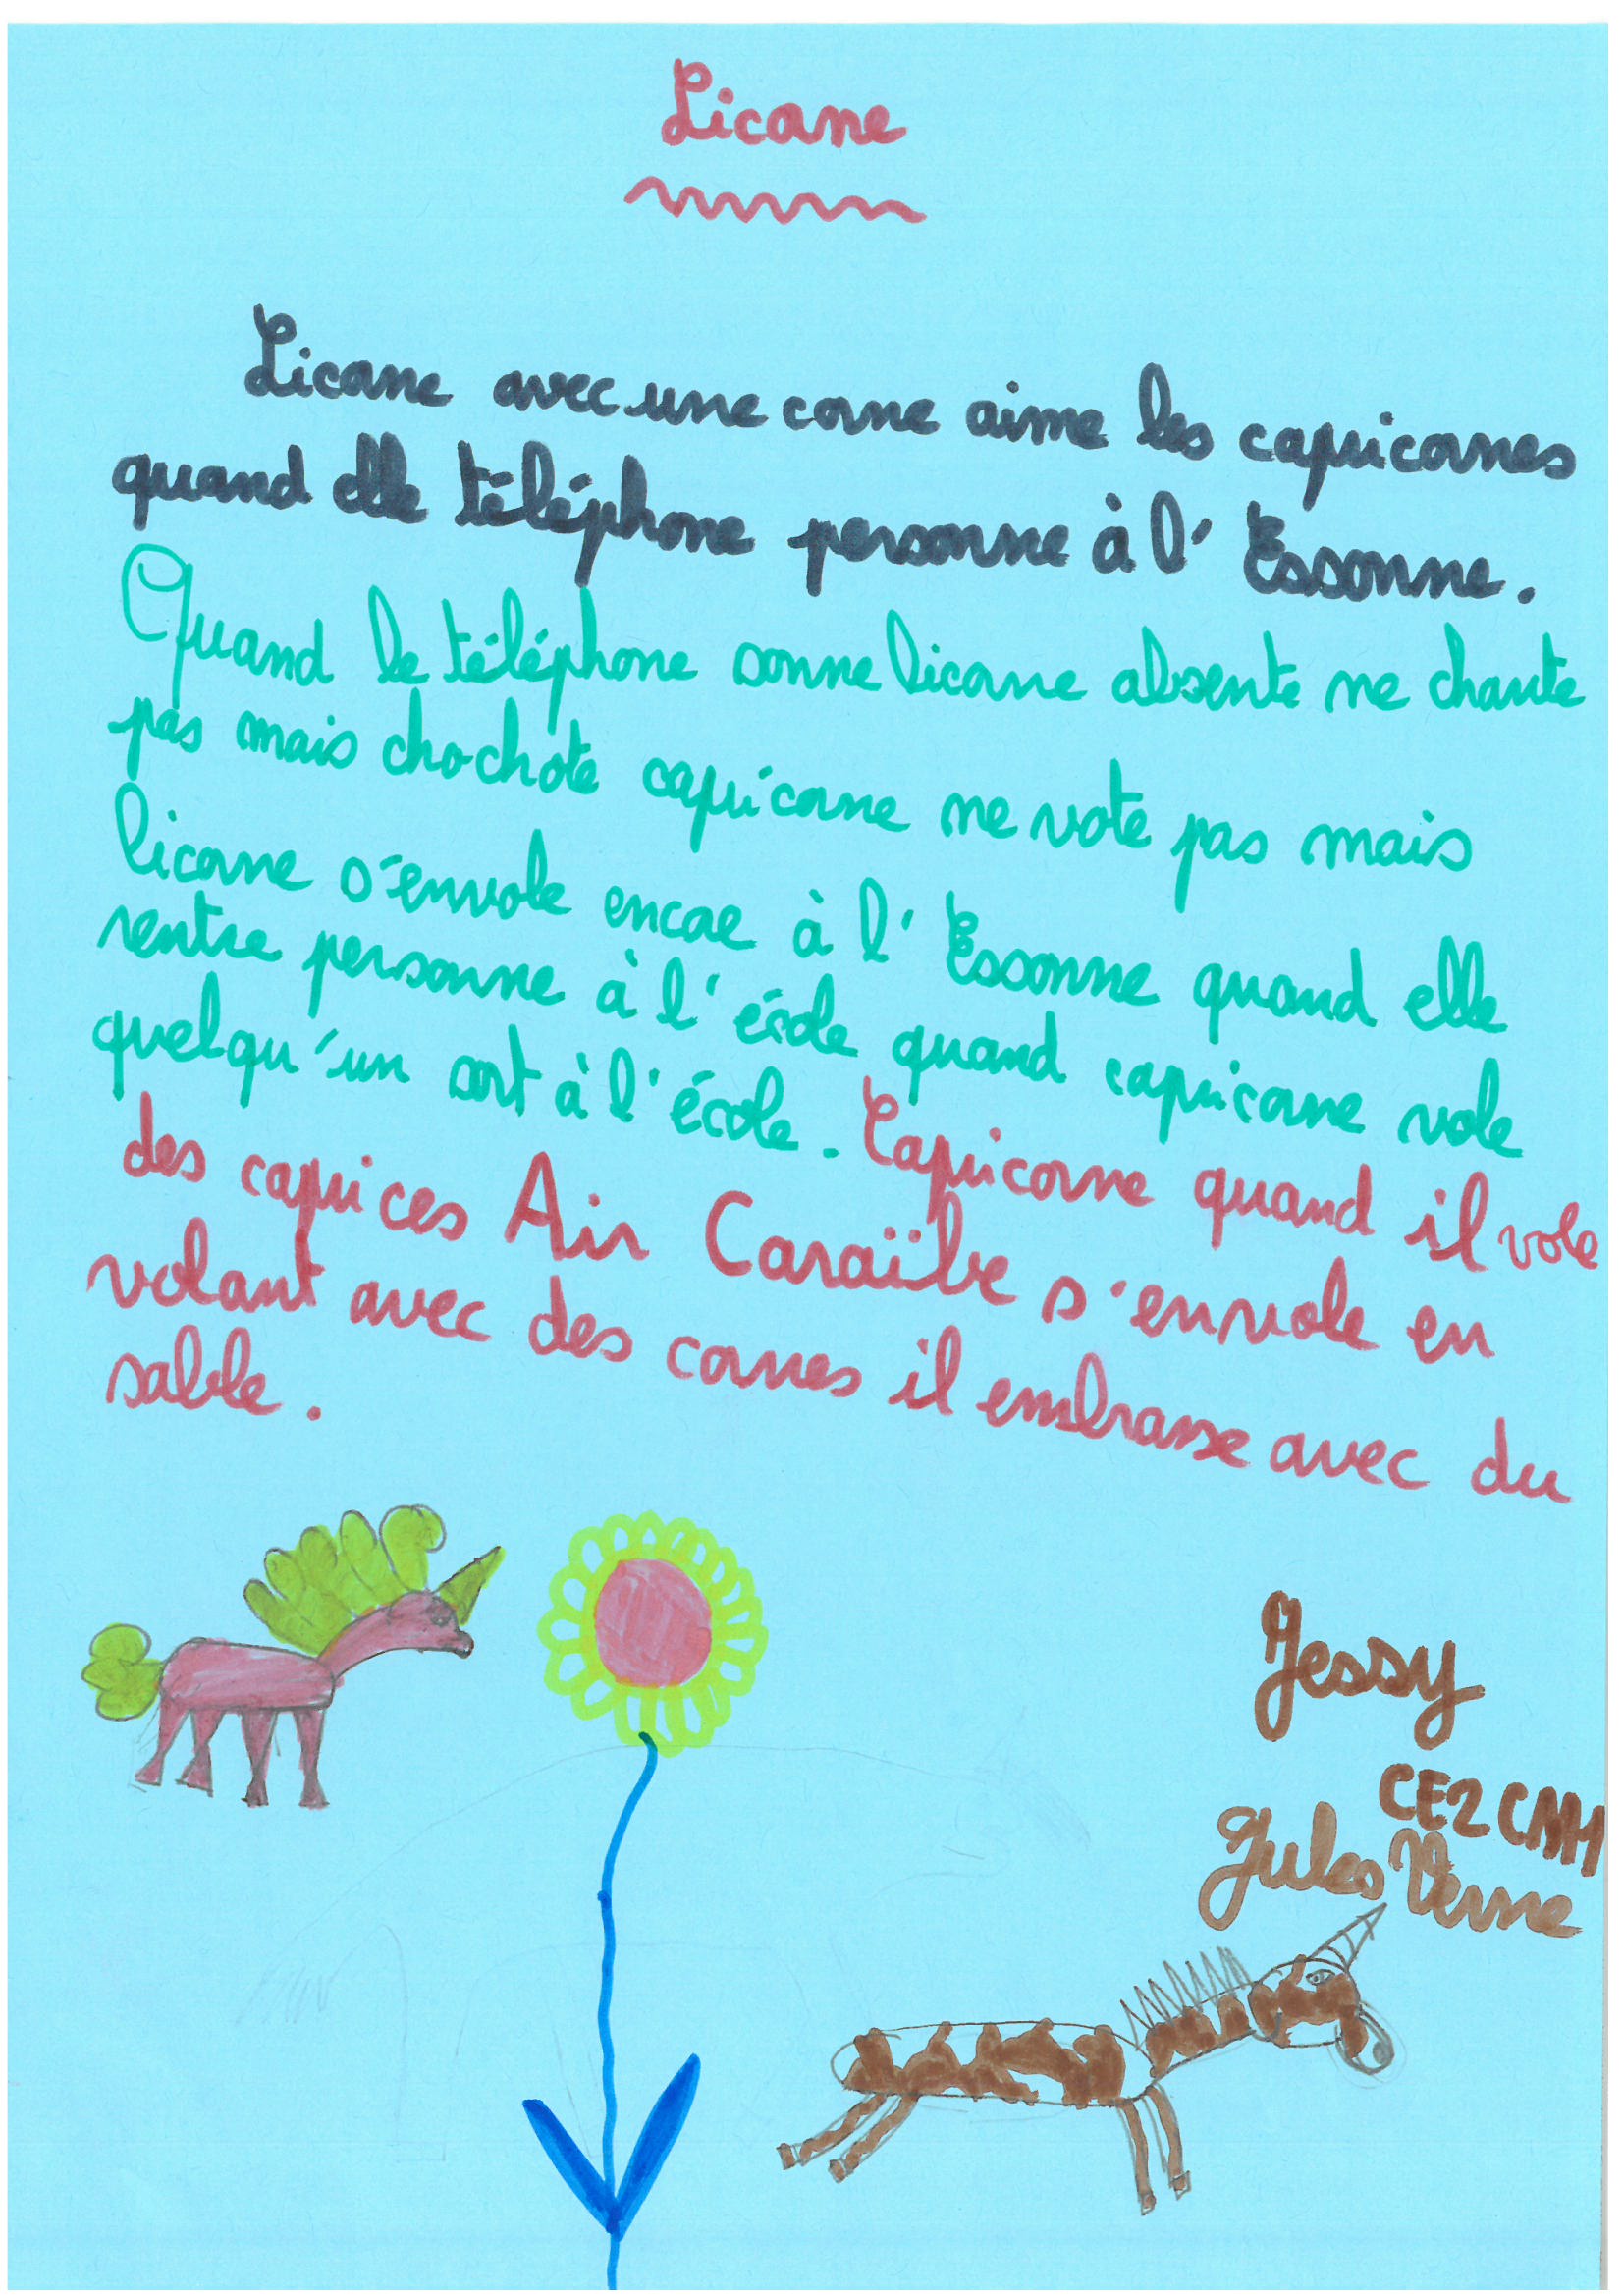 Licorne
Licorne avec une corne aime les capricornes
quand elle téléphone personne à l'Essonne.
Quand le téléphone sonne licorne absente ne chante
pas mais chochote capricorne ne vote pas mais
licorne s'envole encore à l'Essonne quand elle
rentre personne à l'école quand capricorne vole
quelqu'un sort à l'école. Capricorne quand il vole
des caprices Air Caraïbe s'envole en
volant avec des cornes il embrasse avec du
sable.
Jessy
CE2 CM1
Jules Verne